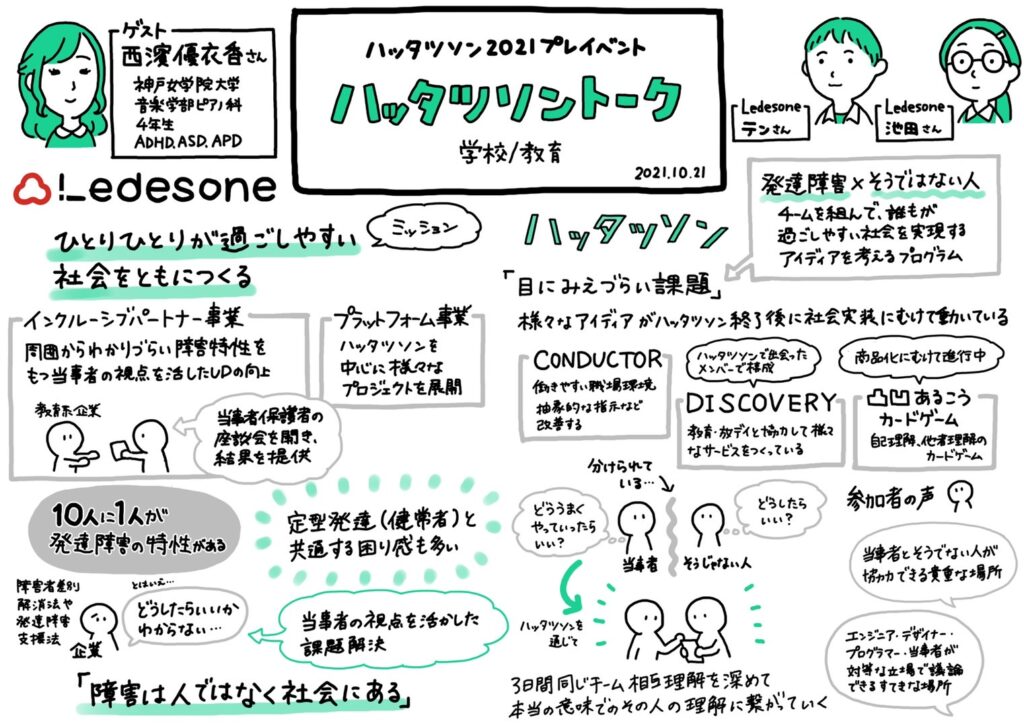 ゲスト
西濱優衣香さん
神戸女学院大学
音楽学部ピアノ科
4年生
ADHD. ASD. APD
ハッタツソン2021プレイベント
ハッタツソントーク
学校/教育
2021.10.21
Ledesone
テンさん
Ledesone
池田さん
Ledesone
ミッション
ひとりひとりが過ごしやすい
社会をともにつくる
インクルーシブパートナー事業
周囲からわかりづらい障害特性を
もつ当事者の視点を活したUDの向上
教育系企業
当事者保護者の
座談会を開き、
結果を提供
プラットフォーム事業
ハッタツソンを
中心に様々な
プロジェクトを展開
10人に1人が
発達障害の特性がある
定型発達(健常者)と
共通する困り感も多い
障害者差別
解消法や
発達障害
支援法
とはいえ…
企業
どうしたらいいか
わからない…
当事者の視点を活かした
課題解決
「障害は人ではなく社会にある」
ハッタツソン
発達障害×そうではない人
チームを組んで、誰もが
過ごしやすい社会を実現する
アイディアを考えるプログラム
「目にみえづらい課題」
様々なアイディアがハッタツソン終了後に社会実装にむけて動いている
CONDUCTOR
働きやすい職場環境
抽象的な指示など
改善する
ハッタツソンで出会った
メンバーで構成
DISCOVERY
教育・放デイと協力して様々
なサービスをつくっている
商品化にむけて進行中
凸凹あるこう
カードゲーム
自己理解、他者理解の
カードゲーム
分けられて
いる…
どううまく
やっていったら
いい?
当事者
そうじゃない人
どうしたら
いい?
ハッタツソンを
通じて
3日間同じチーム 相互理解を深めて
本当の意味でのその人の理解に繋がていく
参加者の声
当事者とそうでない人が
協力できる貴重な場所
エンジニア・デザイナー・
プログラマー・当事者が
対等な立場で議論
できるすてきな場所